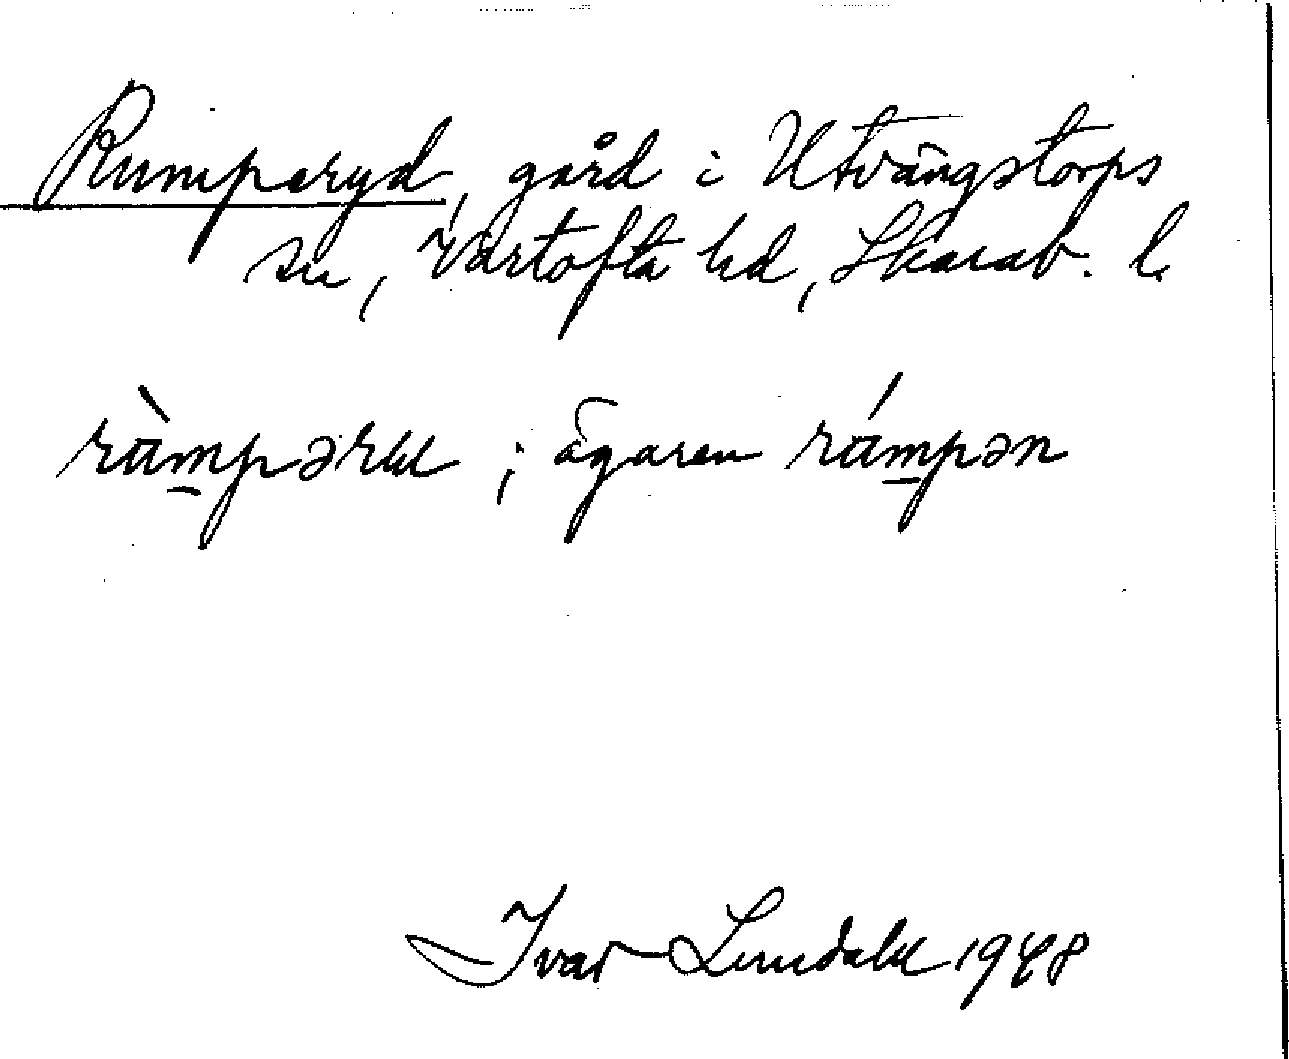 Rumperyd, gård i Utvängstorps
sn, Vartofta hd, Skarab. l.
ràmpərɯ ; ägaren rámpən
Ivar Lundahl 1948